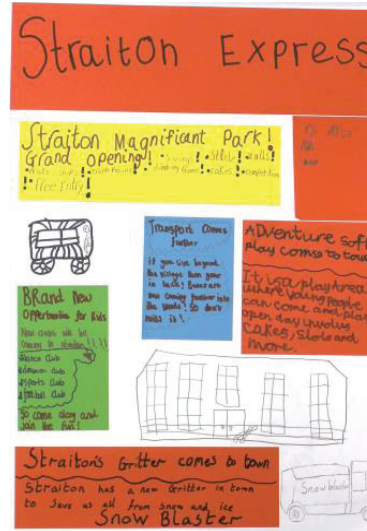 Straiton Express
Straiton Magnificant Park!
Grand opening!
Slide!
Stalls!
cakes!
Free Entry!
Transport Comes further
if you live beyond
the village then your
in luck! Buses are
now coming further into
the woods! So don't
miss it!
ADventure soft
play comes to town
It is a play area
where young people
can come and play
open day involvs
cakes, slots and
more.
Brand New
Opportunitie for kids
New clubs will be
coming to straiton!!!!
dance club
drama club
sports club
football club
So come along and
join the fun!
Straiton's Gritter comes to town
Straiton has a new Gritter in town
to save us all from snow and ice
Snow Blaster
Snow blaster